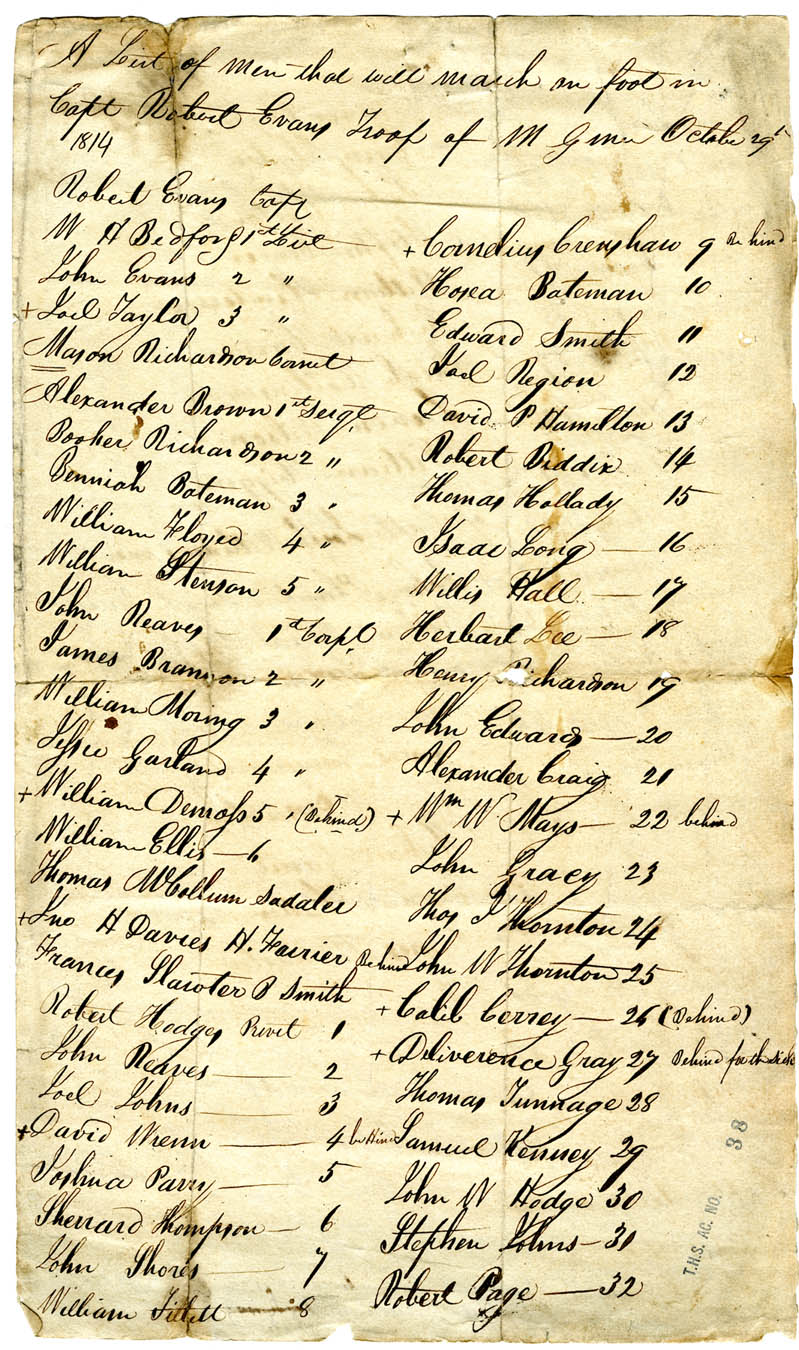 A List of men that will march on foot in
Capt Robert Evans Troop of M G men October 29th
1814
Robert Evans Capt
W H Bedford 1st Liet
John Evans 2 "
+ Joel Taylor 3 "
Mason Richardson Cornet
Alexander Brown 1st Sergt
Booker Richardson 2 "
Benniah Bateman 3 "
William Floyed 4 "
William Stenson 5 "
John Reaves 1st Corpl
James Brannon 2 "
William Moring 3 "
Jesse Garland 4 "
+ William Demoss 5 " (Behind)
William Ellis — 6
Thomas McCollum Sadaler
+ Jno H Davies H. Farrier Behind
Frances Slawter B Smith
Robert Hodges Privet 1
John Reaves — 2
Joel Johns — 3
+ David Wrenn — 4 behind
Joshua Parry — 5
Sherrard Thompson — 6
John Shores 7
William Tittell 8
+ Cornelius Crenshaw 9 Behind
Hosea Bateman 10
Edward Smith 11
Joel Region 12
David P Hamilton 13
Robert Biddix 14
Thomas Hollady 15
Isaac Long — 16
Willis Hall — 17
Herbart Lee — 18
Henry Richardson 19
John Edwards — 20
Alexander Craig 21
+ Wm W Mays — 22 behind
John Gracey 23
Thos J Thornton 24
John W Thornton 25
+ Calib Cerrey — 26 (Behind)
+ Deliverence Gray 27 Behind for the sick
Thomas Tunnage 28
Samuel Kenney 29
John W Hodge 30
Stephen Johns — 31
Robert Page — 32
T.H.S. AC. NO. 38